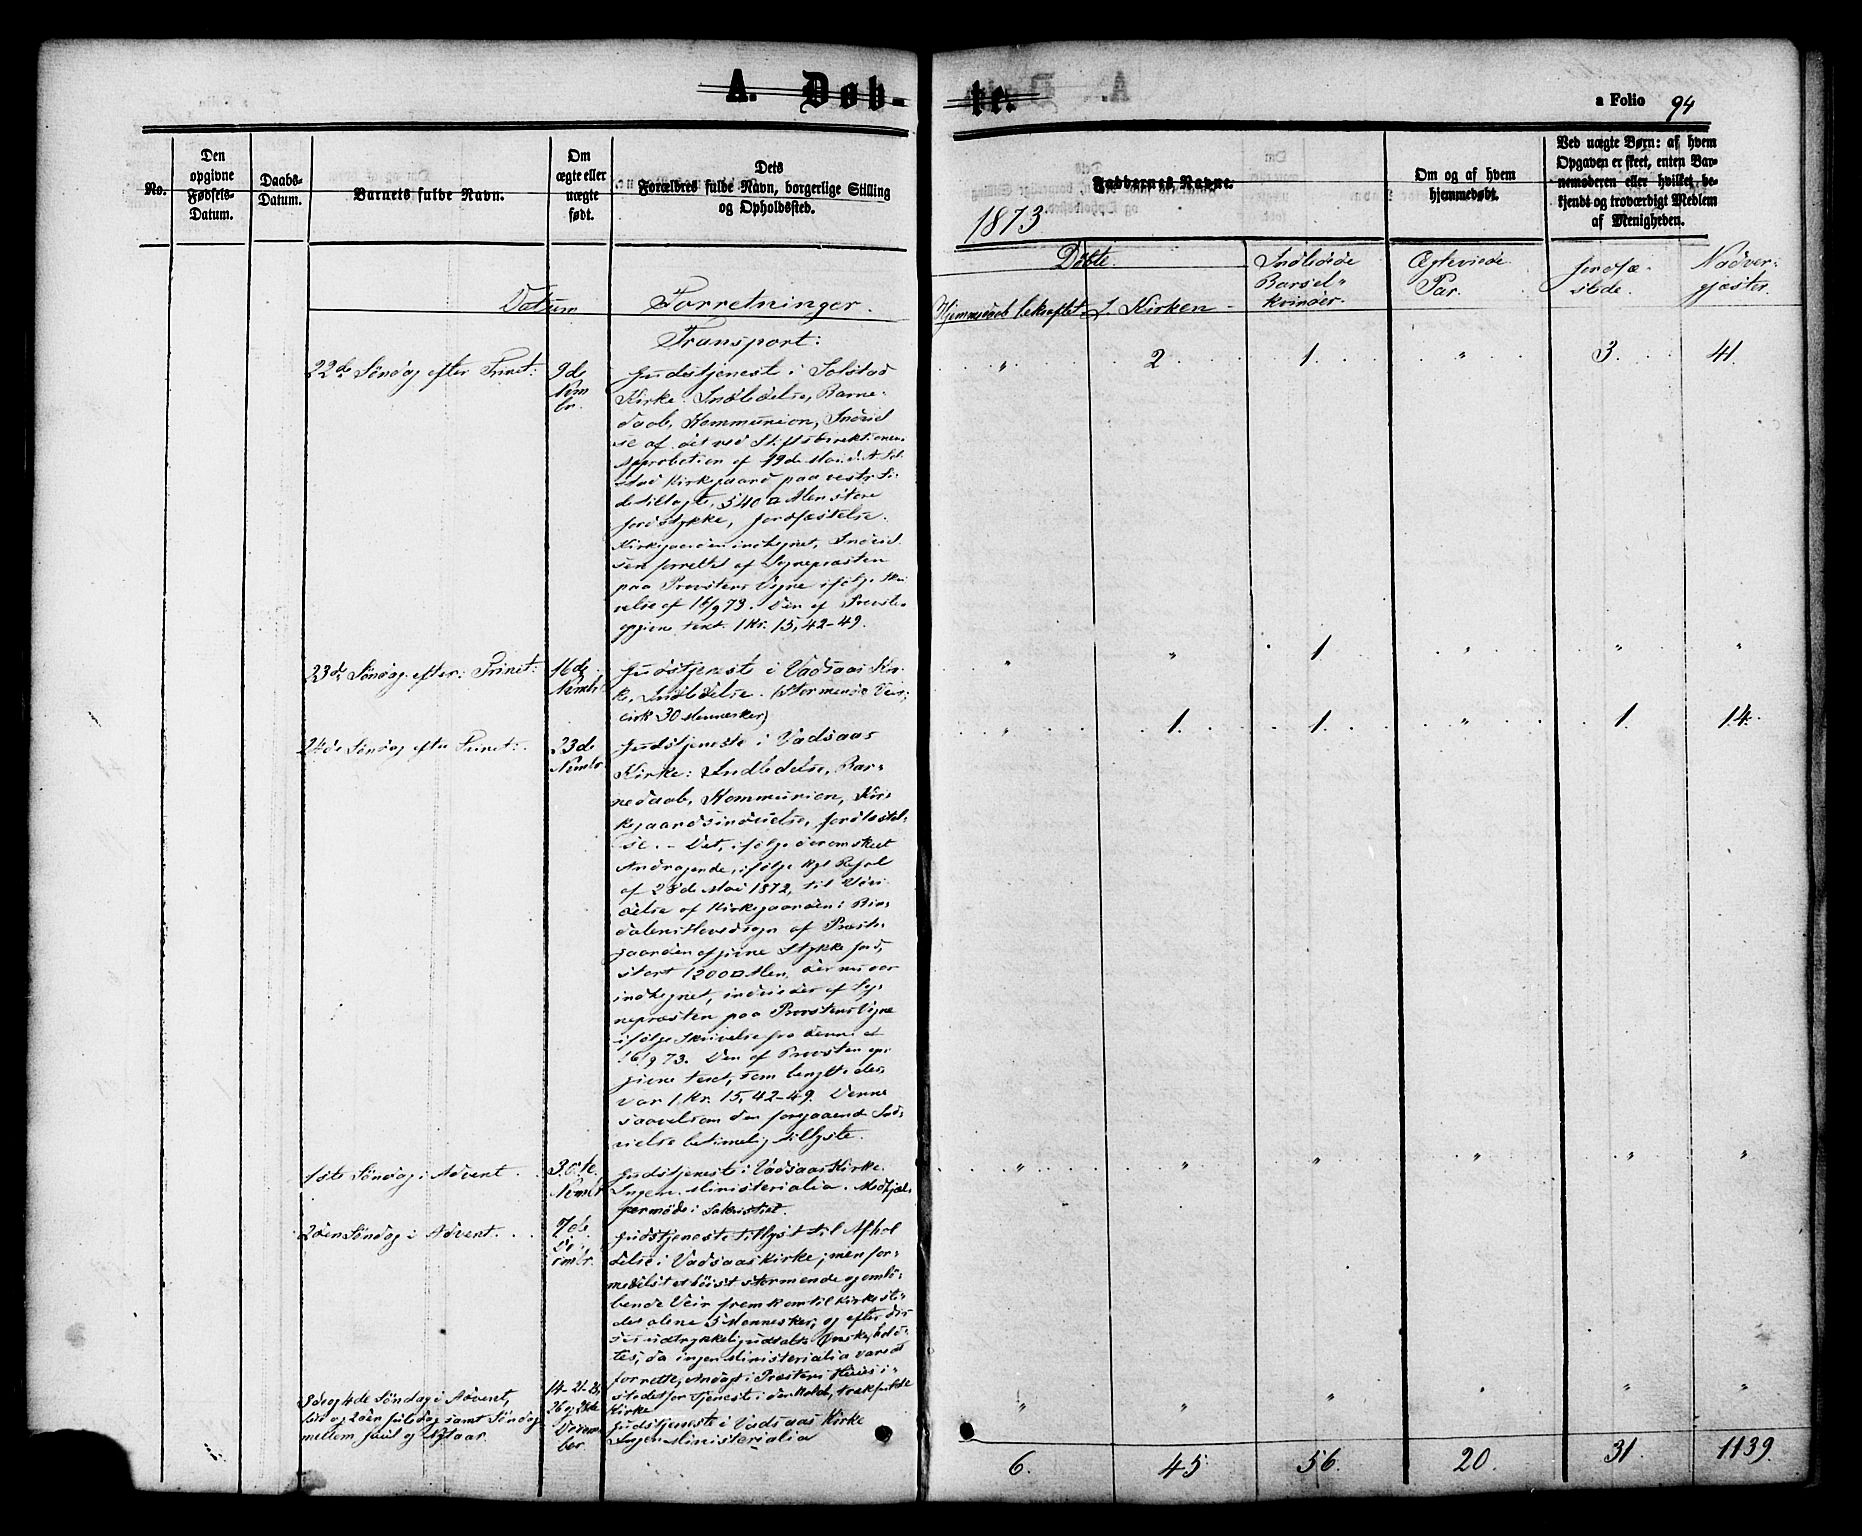 A. Døb-
te.
a Folio 94
No.
Den
opgivne
Fødsels-
Datum.
Daabs-
Datum.
Barnets fulde Navn.
Om
ægte eller
uægte
født.
Dets
Forældres fulde Navn, borgerlige Stilling
og Opholdssted.
Faddernes Navne.
Om og af hvem
hjemmedøbt.
Ved uægte Børn: af hvem
Opgaven er skeet, enten Bar-
nemoderen eller hvilket be-
kjendt og troværdigt Medlem
af Menigheden.
1873
Datum
Forretninger.
Døbte.
Hjemmedaab bekræftet.
I Kirken
Indledede
Barsel-
kvinder.
Ægteviede
Par.
Jordfæ-
stede.
Nadver-
gjæster.
Transport:
22de Søndag efter Trinet:
9de
Nvm
br.
Gudstjeneste i Solstad
Kirke: Indledelse, Barne-
daab, Kommunion, Indviel
se af det ved Stiftsdirektionens
Approbation af 19de Mai d. A. Sol-
stad Kirkegaard paa vestr. Si-
de tillagte, 540 □ Alen store
Jordstykke, Jordfæstelse.
Kirkegaarden indhegnet, Indviel
sen forrettet af Sognepræsten
paa Provstens Vegne ifølge Skri-
velse af 16/9 73. Den af Provsten
opgivne text. 1 Kr. 15, 42-49.
" 2 1 " 3 41
23de Søndag efter Trinet:
16de
Nvmbr
Gudstjeneste i Vadsaas Kir-
ke, Indledelse. (Stormende Veir;
cirk 30 Mennesker)
" " 1 " " "
24de Søndag efter Trinet:
23de
Nvmbr.
Gudstjeneste i Vadsaas
Kirke: Indledelse, Bar-
nedaab, Kommunion, Kir-
kegaardsindvielse, Jordfæstel-
se. - Det, ifølge derom skeet
Andragende, ifølge Kgl Resol
af 28de Mai 1872, til Udvi-
delse af Kirkegaarden i Bin-
dalens Hovedsogn af Præste-
gaarden afgivne Stykke Jord,
stort 1200 □ Alen, der nu var
indhegnet, indviedes af Sog-
nepræsten paa Provstens Vegne
ifølge Skrivelse fra denne af
16/9 73. Den af Provsten op-
givne text, som benyttedes
var 1 Kr. 15, 42-49. Denne
saavelsom den foregaaende Ind-
vielse betimelig tillyste.
" 1 1 " 1 14
1ste Søndag i Advent
30te
Nvmbr
Gudstjeneste i Vadsaas Kirke.
Ingen Ministerialia. Medhjæl-
permøde i Sakristiet.
" " " " " "
2den Søndag i Advent.
7de
De
cmbr.
Gudstjeneste tillyst til Afhol
delse i Vadsaas Kirke; men for-
medelst et høist stormende og omlø-
bende Veir fremkom til Kirkesste-
det alene 5 Mennesker; og efter dis-
ses udtrykkelig udtalte Ønske, holdt-
tes, da ingen Ministerialia var at
forrette, Andagt i Præstens Huus i-
stedetfor Tjeneste i den kolde, trækfulde
Kirke
3die og 4de Søndag i Advent,
1ste og 2den Juledag samt Søndag
mellem Juul og Nytaar.
14- 21- 25,
26 og 28de
Decem
ber.
Gudstjeneste i Vadsaas Kirke
Ingen Ministerialia
" " " " " "
6. 45 56. 20. 31. 1139